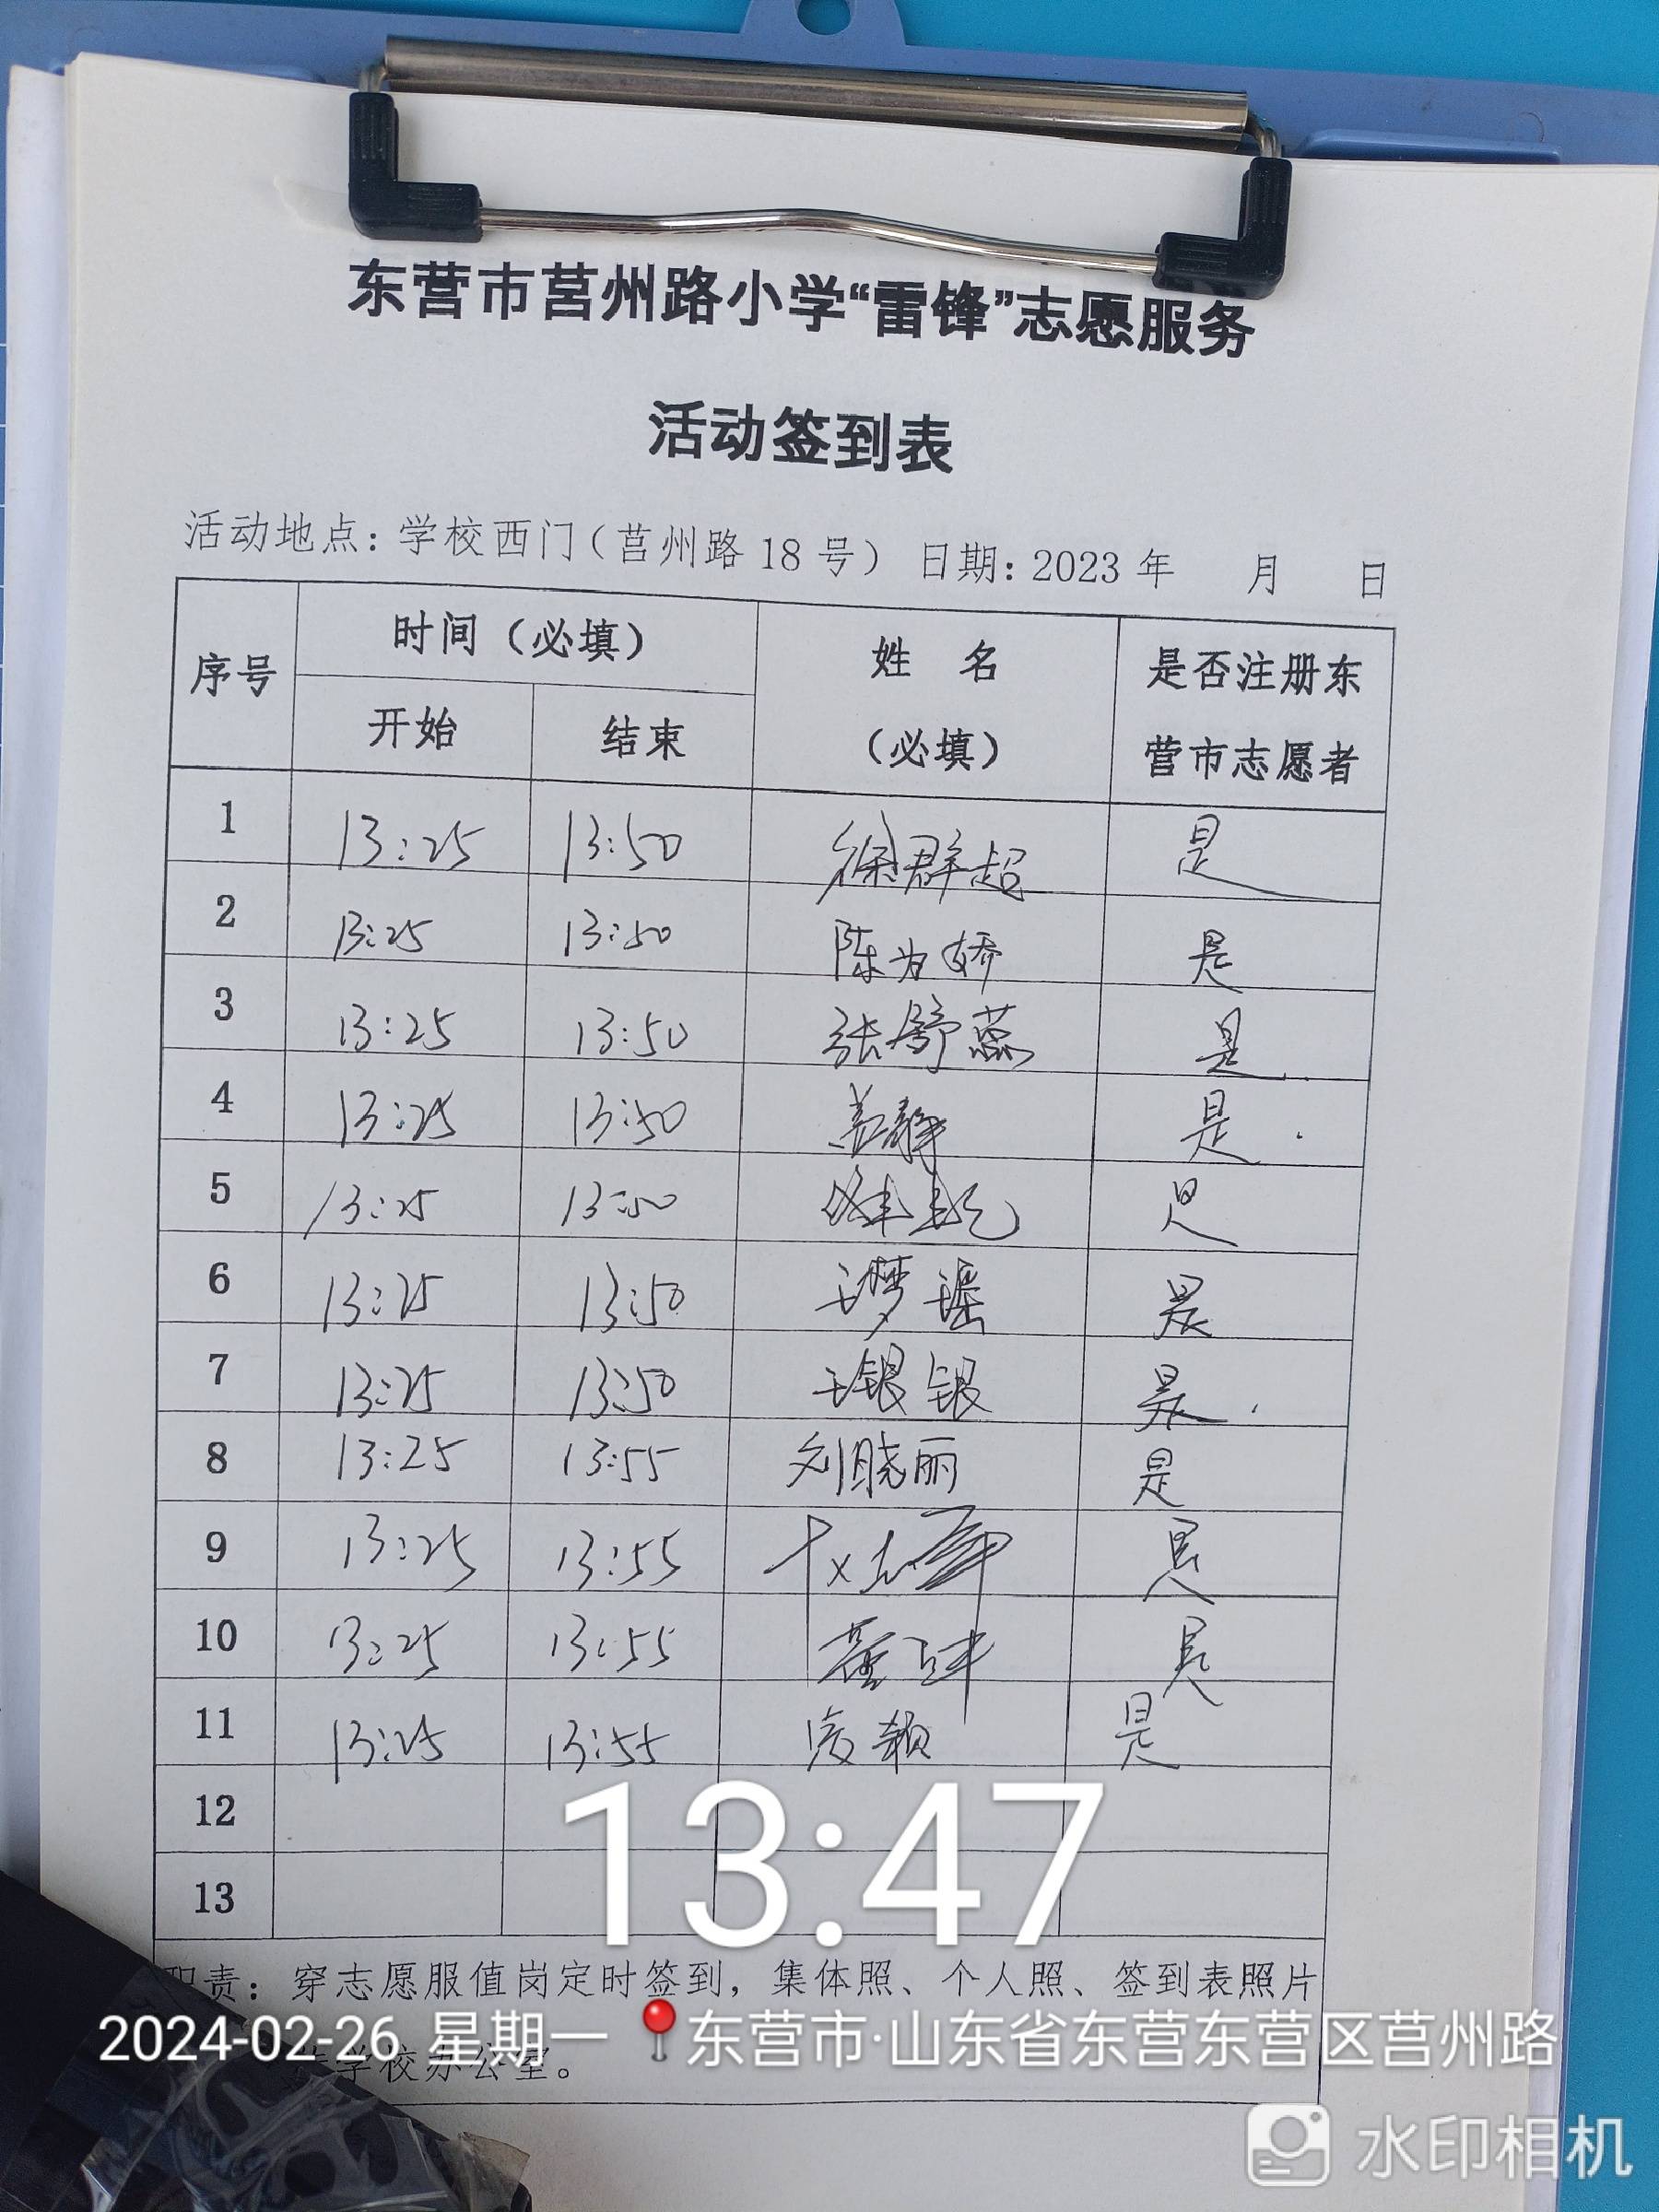 东营市莒州路小学“雷锋”志愿服务
活动签到表
活动地点：学校西门（莒州路 18 号） 日期：2023 年 月 日
序号 时间（必填） 姓 名（必填） 是否注册东营市志愿者
开始 结束
1 13:25 13:50 徐群超 是
2 13:25 13:50 陈为娇 是
3 13:25 13:50 张舒蕊 是
4 13:25 13:50 盖静 是
5 13:25 13:50 是
6 13:25 13:50 王梦瑶 是
7 13:25 13:50 王银银 是
8 13:25 13:55 刘晓丽 是
9 13:25 13:55 是
10 13:25 13:55 是
11 13:25 13:55 是
12
13
13:47
职责：穿志愿服值岗定时签到，集体照、个人照、签到表照片
2024-02-26 星期一 东营市·山东省东营东营区莒州路
学校办公室。
水印相机